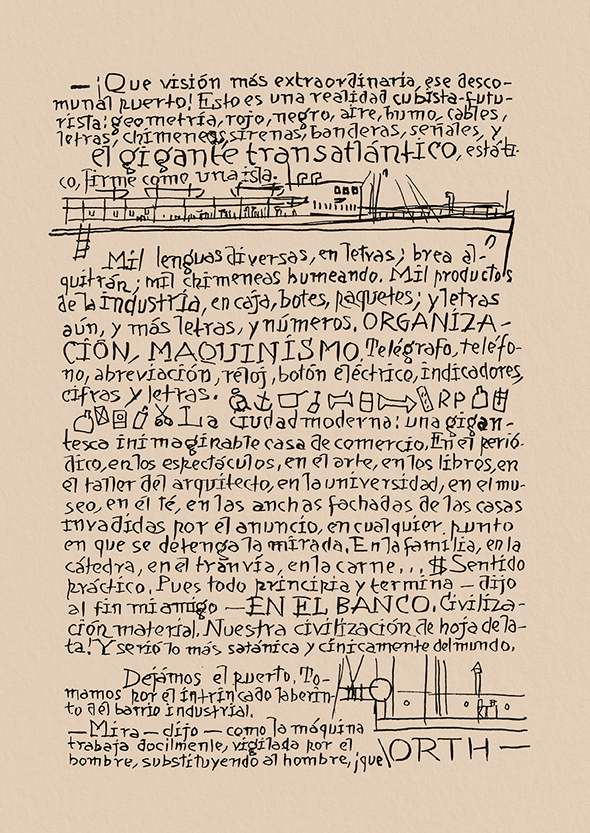 — ¡Que visión más extraordinaria, ese desco-
munal puerto! Esto es una realidad cubista-futu-
rista: geometría, rojo, negro, aire, humo, cables,
letras, chimeneas, sirenas, banderas, señales, y
el gigante transatlántico, estáti-
co, firme como una isla.
Mil lenguas diversas, en letras; brea al-
quitrán; mil chimeneas humeando. Mil productos
de la industria, en caja, botes, paquetes; y letras
aún, y más letras, y números. ORGANIZA-
CIÓN, MAQUINISMO. Telégrafo, teléfo-
no, abreviación, reloj, botón eléctrico, indicadores,
cifras y letras. RP
La ciudad moderna: una gigan-
tesca inimaginable casa de comercio. En el perió-
dico, en los espectáculos, en el arte, en los libros, en
el taller del arquitecto, en la universidad, en el mu-
seo, en el té, en las anchas fachadas de las casas
invadidas por el anuncio, en cualquier punto
en que se detenga la mirada. En la familia, en la
cátedra, en el tranvía, en la carne... $ Sentido
práctico. Pues todo principia y termina — dijo
al fin mi amigo — EN EL BANCO. Civiliza-
ción material. Nuestra civilización de hoja de la-
ta! Y se rió lo más satánica y cínicamente del mundo.
Dejámos el puerto. To-
mamos por el intrincado laberin-
to del barrio industrial.
— Mira — dijo — como la máquina
trabaja docilmente, vigilada por el
hombre, substituyendo al hombre, ¡que
ORTH —